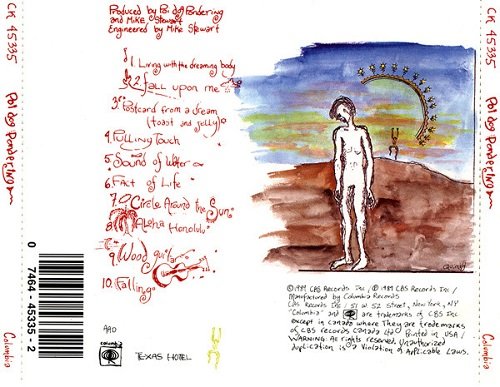 CK 45335
Poi dog Pondering
Columbia
Produced by Poi dog Pondering
and Mike Stewart
Engineered by Mike Stewart
1 Living with the dreaming body
2 fall upon me
3. Postcard from a dream
(toast and jelly)
4. Pulling Touch
5. Sound of Water
6. Fact of Life
7. Circle Around the Sun
8. Aloha Honolulu
9. Wood guitar
10. Falling
0 7464-45335-2
AAD
Columbia
TEXAS HOTEL
©1989 CBS Records Inc / ℗ 1989 CBS Records Inc /
Manufactured by Columbia Records
CBS Records Inc / 51 W 52 Street, New York, NY
"Columbia" and are trademarks of CBS Inc
except in canada where They are trademarks
of CBS records Canada Ltd Printed in USA /
WARNING: All rights reserved. Unauthorized
duplication is a Violation of Applicable Laws.
CK 45335
Poi dog Pondering
Columbia